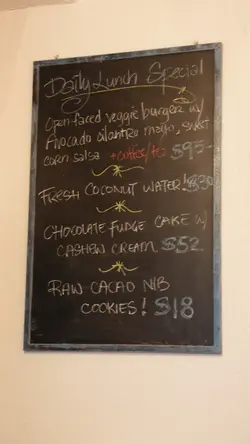 Daily Lunch Special
Open faced veggie burger w/
Avocado cilantro mayo, sweet
corn salsa +coffee/tea $95-
FRESH COCONUT WATER! $30
CHOCOLATE FUDGE CAKE w/
CASHEW CREAM $52
RAW CACAO NIB
COOKIES! $18